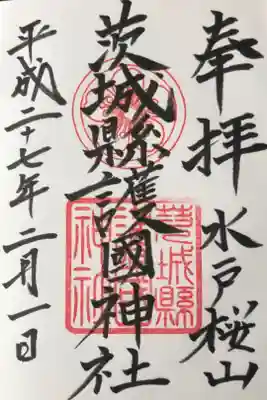 奉拝
水戸桜山
茨城縣護國神社
平成二十七年二月一日
茨城縣
護國
神社